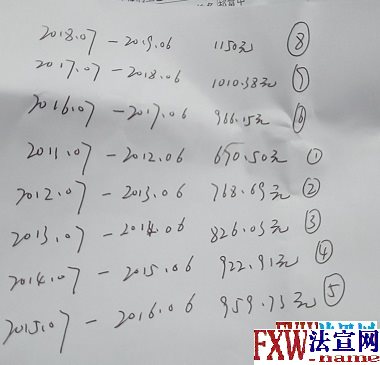 2018.07 - 2019.06 1150元 ⑧
2017.07 - 2018.06 1010.38元 ⑦
2016.07 - 2017.06 966.15元 ⑥
2011.07 - 2012.06 690.50元 ①
2012.07 - 2013.06 768.69元 ②
2013.07 - 2014.06 826.05元 ③
2014.07 - 2015.06 922.91元 ④
2015.07 - 2016.06 959.73元 ⑤
FXW 法宣网